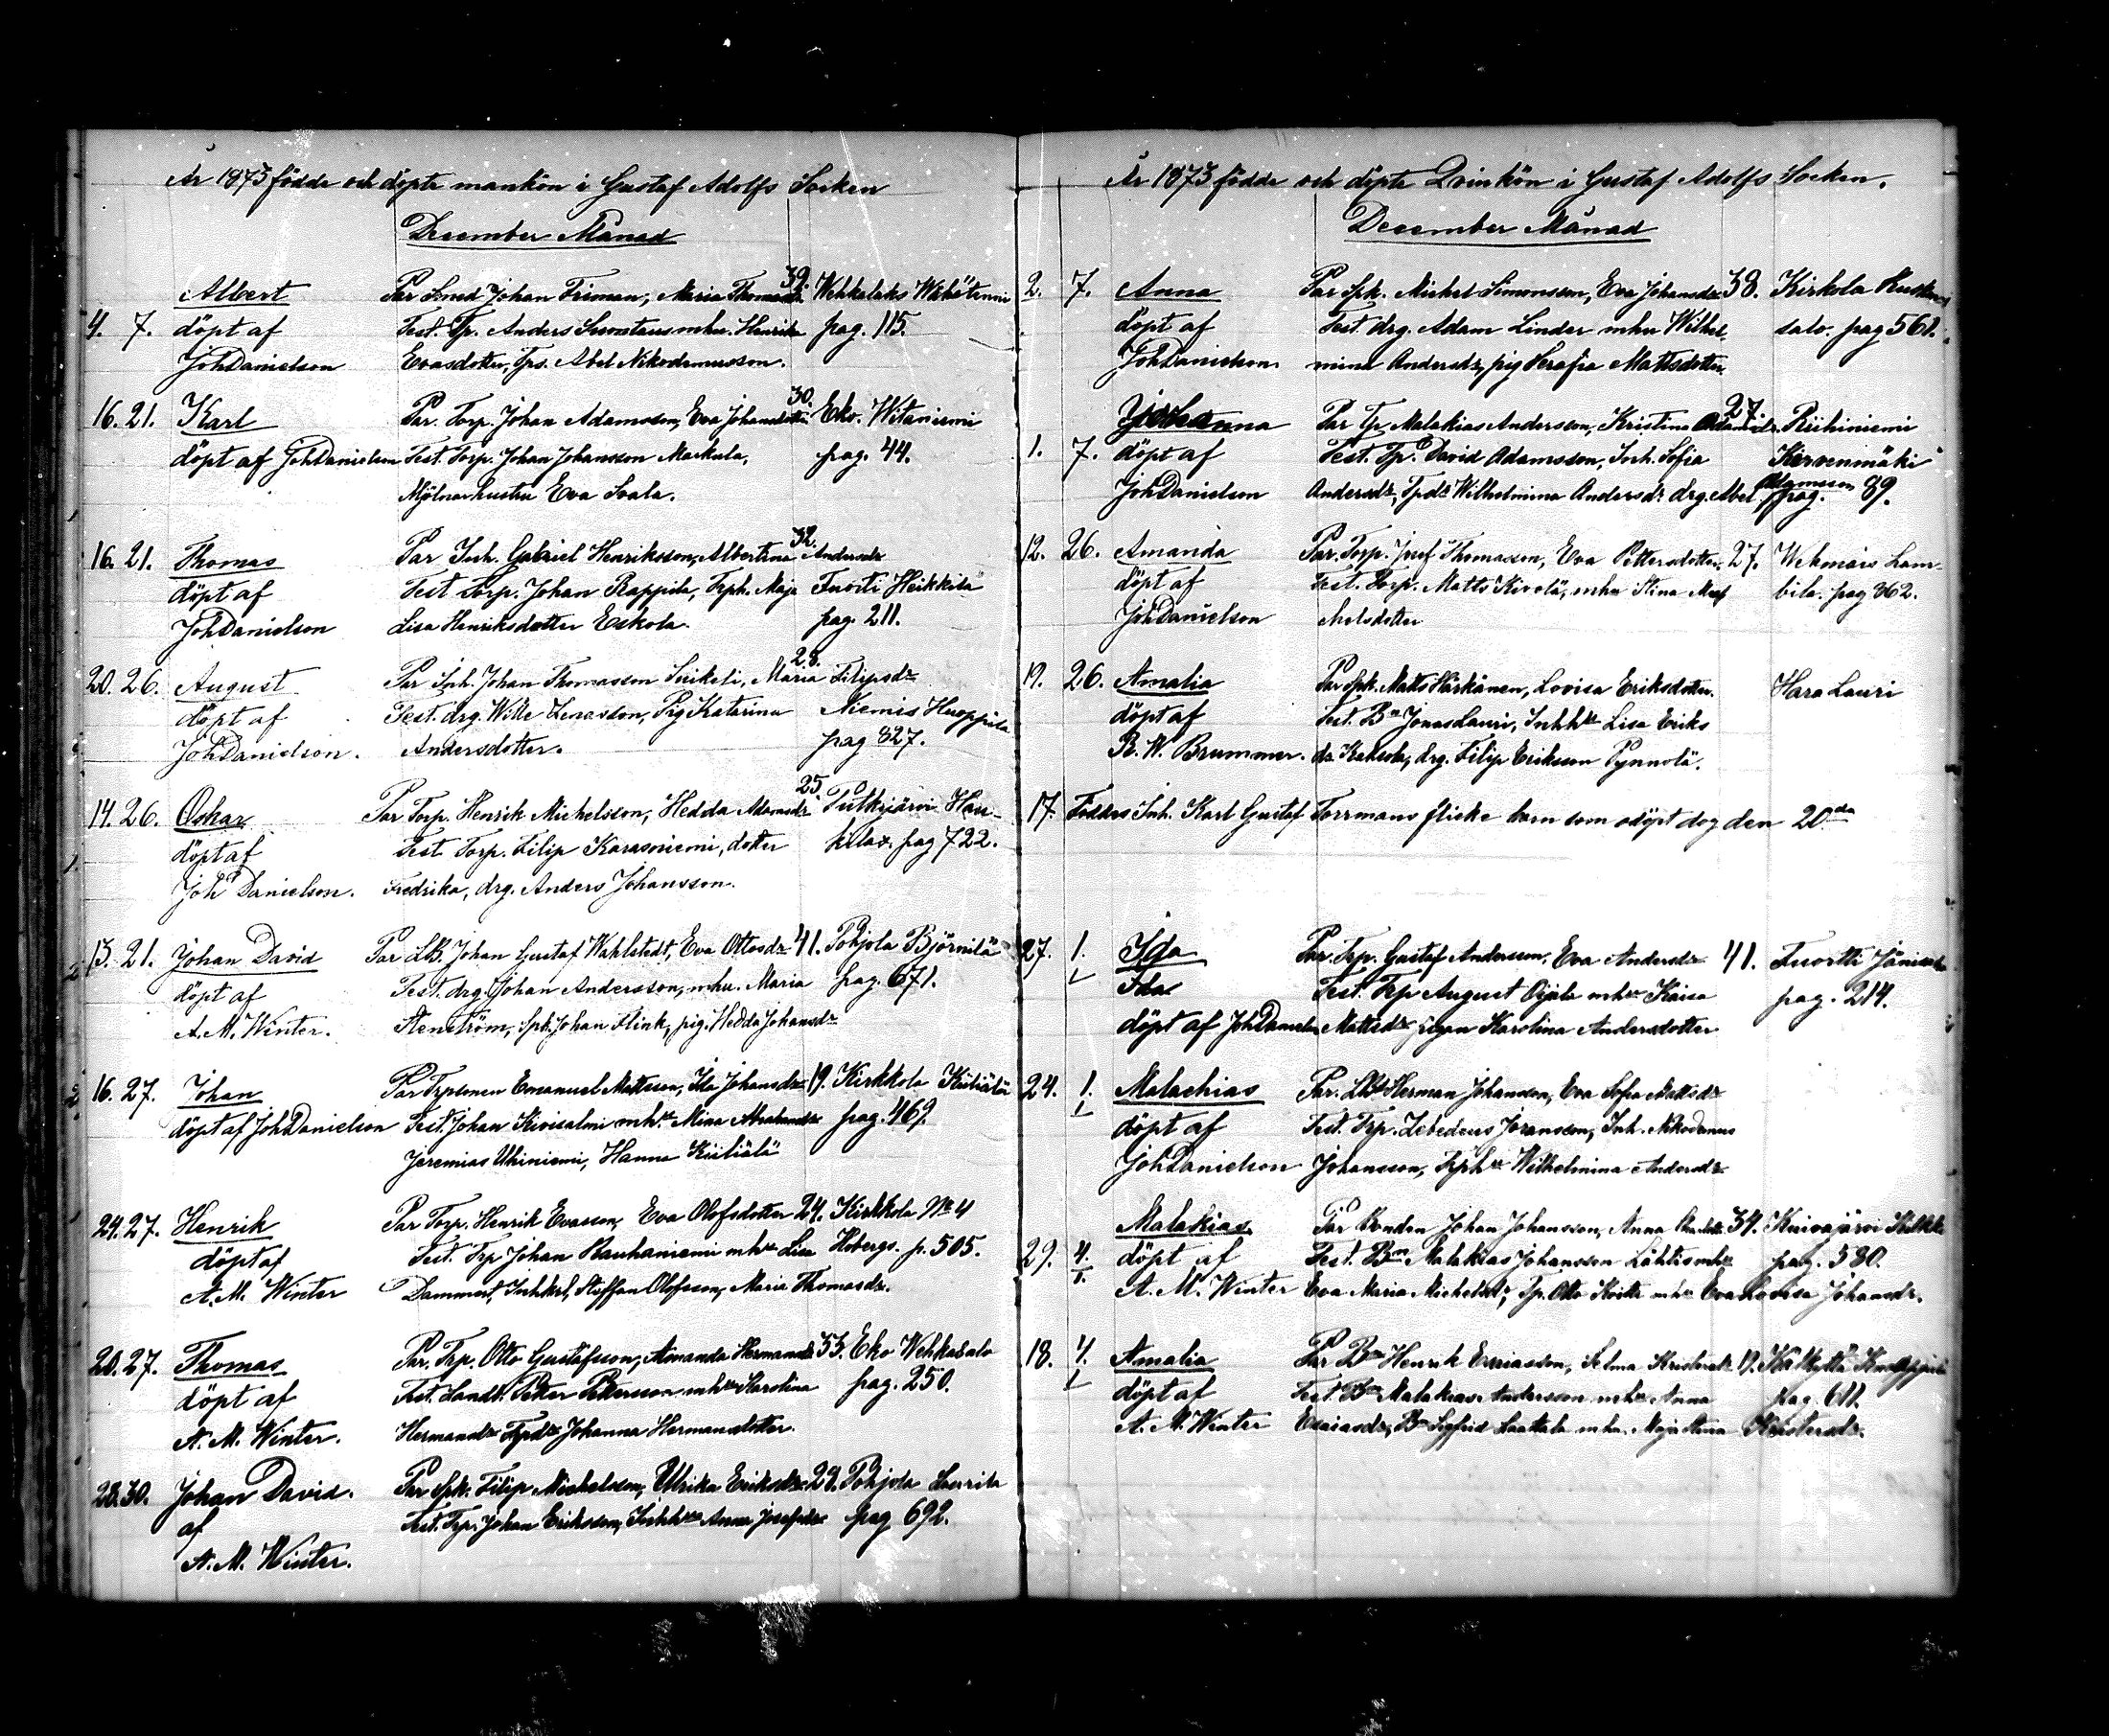 År 1873 födde och döpte mankön i Gustaf Adolfs Socken
December Månad
39.
Albert Par Smed Johan Friman, Maria Thomasdr Wehkalaks
4. 7. döpt af Test. Tp. Anders mhu. Henrika pag. 115.
JohDanielson Evasdotter, Tps. Abel Nikodemusson.
30.
16. 21. Karl Par. Torp. Johan Adamsson, Eva Johansdotter Eko. Witaniemi
döpt af JohDanielson Test. Torp. Johan Johansson Markula, pag. 44.
Mjölnarhustru Eva Soala.
32.
16. 21. Thomas Par Inh. Gabriel Henriksson, Albertina Andersdr
döpt af Test Torp. Johan Rappila, Trph. Maja Tuorti Heikkilä
JohDanielson Lisa Henriksdotter Eskola. pag. 211.
28.
20. 26. August Par Inh. Johan Thomasson Sirikeli, Maria Filipsdr
döpt af Test. drg. Wille Zenosson, Pig Katarina Niemis Huoppila
JohDanielson. Andersdotter. pag 827.
25.
14. 26. Oskar Par Torp. Henrik Michelsson, Hedda Adamsdr Putkijärvi Hau-
döpt af Test. Torp. Filip Karasniemi, dotter kilax. pag 722.
Joh Danielson. Fredrika, drg. Anders Johansson.
13. 21. Johan David Par LB. Johan Gustaf Wahlstedt, Eva Ottosdr 41. Pohjola Björnilä
döpt af Test. drg. Johan Andersson, mhu. Maria pag. 671.
A. M. Winter. Stenström, Spk. Johan Flink, pig. Hedda Johansdr
16. 27. Johan Par Trpsonen Emanuel Mattsson, Ida Johansdr 19. Kirkkola Kiiliälä
döpt af JohDanielson Test. Johan Kivisalmi mhu Mina Abrahamsdr pag. 469.
Jeremias Uhiniemi, Hanna Kiiliälä
24. 27. Henrik Par Torp. Henrik Evasson, Eva Olofsdotter 24. Kirkkola No 4
döpt af Test. Trp Johan Rauhaniemi mhu Lisa Hobergs. p. 505.
A. M. Winter Dammert, Inhkrl, Staffan Olofsson, Maria Thomasdr.
20. 27. Thomas Par. Trp. Otto Gustafsson, Amanda Hermansdr 33. Eko Wehkasalo
döpt af Test. Landb. Petter Pettersson mhu Karolina pag. 250.
A. M. Winter. Hermansdr Trpdr Johanna Hermansdotter.
28. 30. Johan David. Par Spk. Filip Michelsson, Ulrika Eriksdr 29. Pohjola Laurila
af Test. Trp. Johan Eriksson, Inhhu Anna Josefsdr pag 692.
A. M. Winter.
År 1873 födde och döpte Qvinkön i Gustaf Adolfs Socken.
December Månad
2. 7. Anna Par Spk. Michel Simonsson, Eva Johansdr 38. Kirkola
döpt af Test. drg. Adam Linder mhu Wilhel- salo. pag 561.
JohDanielson mina Andersdr, pig Serafia Mattsdotter
27.
Johanna Par Tp. Malakias Andersson, Kristina Adamsdr Riihiniemi
1. 7. döpt af Test. Tp. David Adamsson, Inh. Sofia Kiervenmäki
JohDanielson Andersdr, Tpdr Wilhelmina Andersdr drg. Abel Adamsson pag. 89.
12. 26. Amanda Par. Torp. Josef Thomasson, Eva Pettersdotter 27. Wehmais Lam-
döpt af Test. Torp. Matts Kivelä, mhu Stina Mi- bila. pag 862.
JohDanielson chelsdotter
19. 26. Amalia Par Spk. Matts Härkönen, Lovisa Eriksdotter. Hara Lauri
döpt af Test. Bn Jonas Lauri, Inhhu Lisa Eriks
R. W. Brummer. dr Kalsola, drg. Filip Eriksson Pynnölä.
17. Föddes Inh. Karl Gustaf Torrmans flicke barn som odöpt dog den 20de
27. 1/1 Ida Par. Trp. Gustaf Andersson, Eva Andersdr 41. Tuortti
Ida Test. Trp August Ojala mhu Kaisa pag. 214.
döpt af JohDanielson Mattsdr, pigan Karolina Andersdotter
24. 1/1 Malachias Par. LB Herman Johansson, Eva Sofia Mattsdr
döpt af Test. Trp. Zebedeus Joransson, Inh. Nikodemus
JohDanielson Johansson, Trphu Wilhelmina Andersdr
Malakias Par Bonden Johan Johansson, Anna 34. Kuivajärvi
29. 4/1. döpt af Test. Bn Malakias Johansson Lahtis mhu pag. 580.
A. M. Winter Eva Maria Michelsdr, Tp. Otto mhu Eva Lovisa Johansdr.
18. 4/1 Amalia Par Bn Henrik Esaiasson, Selma 19. Kalkyttä
döpt af Test. Bn Malakias Andersson mhu Anna pag. 611.
A. M. Winter Esaiasdr, Bn Sigfrid mhu. Maja Stina Kristersdr.